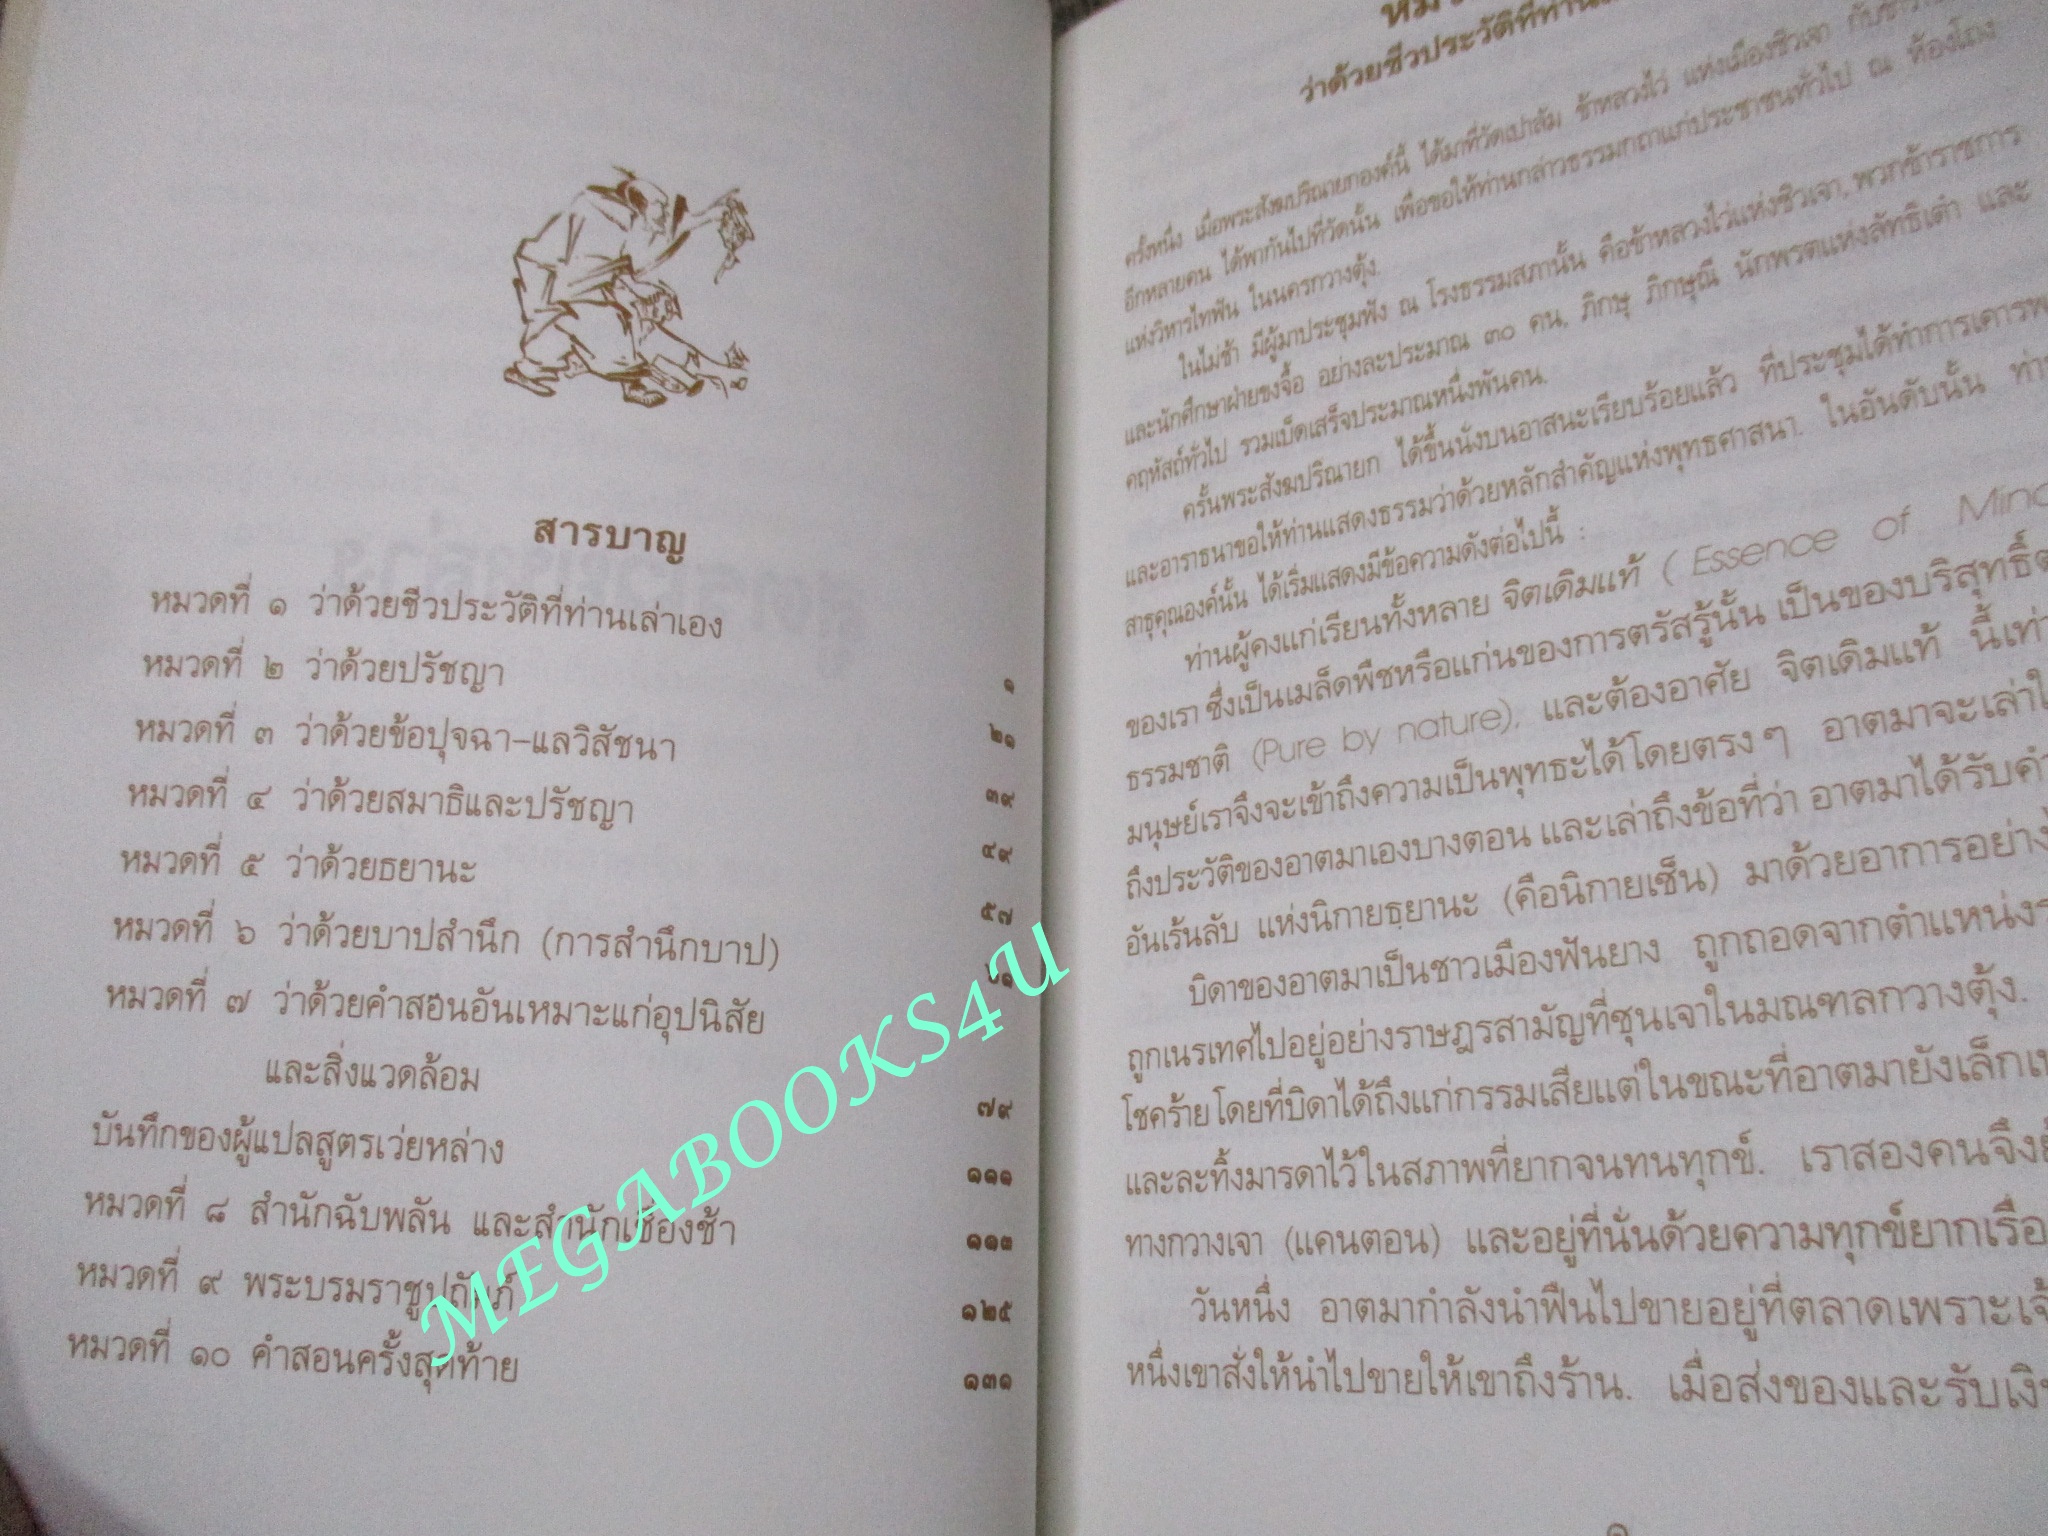 สารบาญ
หมวดที่ ๑ ว่าด้วยชีวประวัติที่ท่านเล่าเอง
๑
หมวดที่ ๒ ว่าด้วยปรัชญา
๒๑
หมวดที่ ๓ ว่าด้วยข้อปุจฉา-แลวิสัชนา
๓๙
หมวดที่ ๔ ว่าด้วยสมาธิและปรัชญา
๔๙
หมวดที่ ๕ ว่าด้วยธยานะ
๕๗
หมวดที่ ๖ ว่าด้วยบาปสำนึก (การสำนึกบาป)
หมวดที่ ๗ ว่าด้วยคำสอนอันเหมาะแก่อุปนิสัย
และสิ่งแวดล้อม
๗๙
บันทึกของผู้แปลสูตรเว่ยหล่าง
๑๑๑
หมวดที่ ๘ สำนักฉับพลัน และสำนักเชื่องช้า
๑๑๓
หมวดที่ ๙ พระบรมราชูปถัมภ์
๑๒๕
หมวดที่ ๑๐ คำสอนครั้งสุดท้าย
๑๓๑
MEGABOOKS4U
ว่าด้วยชีวประวัติที่ท่าน
ครั้งหนึ่ง เมื่อพระสังฆปริณายกองค์นี้ ได้มาที่วัดเปาลัม ข้าหลวงไว่ แห่งเมืองชิวเจา กับ
อีกหลายคน ได้พากันไปที่วัดนั้น เพื่อขอให้ท่านกล่าวธรรมกถาแก่ประชาชนทั่วไป ณ ห้องโถง
แห่งวิหารไทฟัน ในนครกวางตุ้ง.
ในไม่ช้า มีผู้มาประชุมฟัง ณ โรงธรรมสภานั้น คือข้าหลวงไว่แห่งชิวเจา, พวกข้าราชการ
และนักศึกษาฝ่ายขงจื้อ อย่างละประมาณ ๓๐ คน, ภิกษุ ภิกษุณี นักพรตแห่งลัทธิเต๋า และ
คฤหัสถ์ทั่วไป รวมเบ็ดเสร็จประมาณหนึ่งพันคน.
ครั้นพระสังฆปริณายก ได้ขึ้นนั่งบนอาสนะเรียบร้อยแล้ว ที่ประชุมได้ทำการเคารพ
และอาราธนาขอให้ท่านแสดงธรรมว่าด้วยหลักสำคัญแห่งพุทธศาสนา. ในอันดับนั้น
สาธุคุณองค์นั้น ได้เริ่มแสดงมีข้อความดังต่อไปนี้ :
ท่านผู้คงแก่เรียนทั้งหลาย จิตเดิมแท้ ( Essence of Mind
ของเรา ซึ่งเป็นเมล็ดพืชหรือแก่นของการตรัสรู้นั้น เป็นของบริสุทธิ์
ธรรมชาติ (Pure by nature), และต้องอาศัย จิตเดิมแท้ นี้
มนุษย์เราจึงจะเข้าถึงความเป็นพุทธะได้โดยตรงๆ อาตมาจะเล่า
ถึงประวัติของอาตมาเองบางตอน และเล่าถึงข้อที่ว่า อาตมาได้รับ
อันเร้นลับ แห่งนิกายธฺยานะ (คือนิกายเซ็น) มาด้วยอาการอย่าง
บิดาของอาตมาเป็นชาวเมืองฟันยาง ถูกถอดจากตำแหน่ง
ถูกเนรเทศไปอยู่อย่างราษฎรสามัญที่ซุนเจาในมณฑลกวางตุ้ง.
โชคร้าย โดยที่บิดาได้ถึงแก่กรรมเสียแต่ในขณะที่อาตมายังเล็ก
และละทิ้งมารดาไว้ในสภาพที่ยากจนทนทุกข์. เราสองคนจึง
ทางกวางเจา (แคนตอน) และอยู่ที่นั่นด้วยความทุกข์ยาก
วันหนึ่ง อาตมากำลังนำฟืนไปขายอยู่ที่ตลาดเพราะ
หนึ่งเขาสั่งให้นำไปขายให้เขาถึงร้าน. เมื่อส่งของและรับ